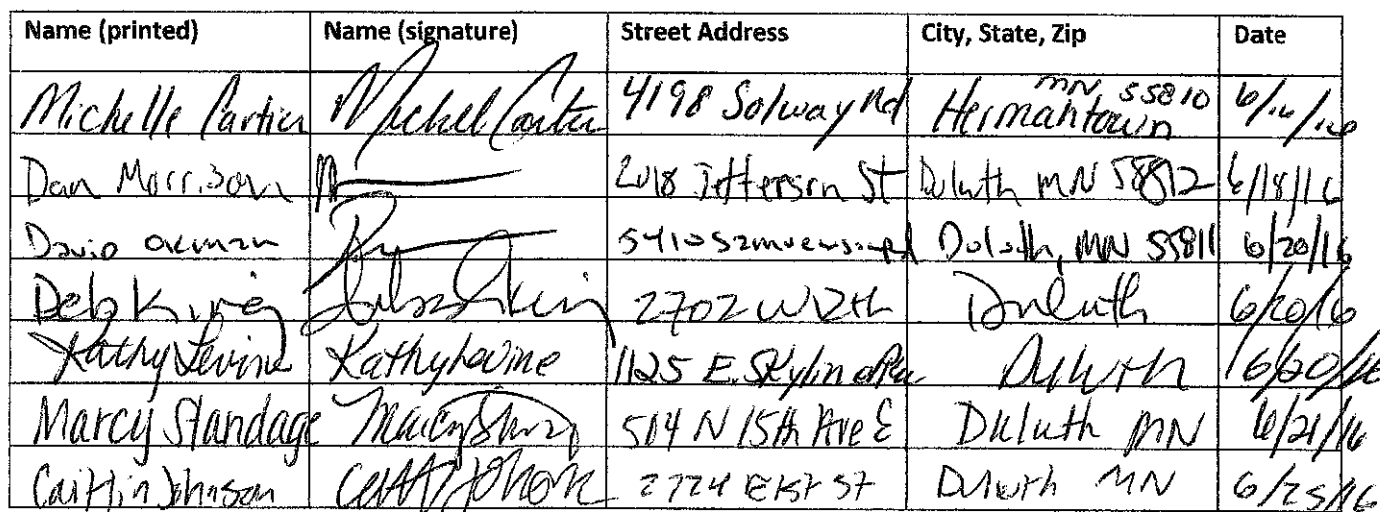 Name (printed) Name (signature) Street Address City, State, Zip Date
Michelle Cartier Michel Cartier 4198 Solway Rd Hermantown MN 55810 6/16/16
Dan Morrison 2018 Jefferson St Duluth MN 58812 6/18/16
David 5410 Duluth, MN 55811 6/20/16
Deb King 2702 W 12th Duluth 6/20/16
Kathy Levine Kathy Levine 1125 E. Skyline Duluth 6/20/16
Marcy Standage 504 N 15th Ave E Duluth MN 6/21/16
Caitlin Johnson 2724 E 1st St Duluth MN 6/25/16